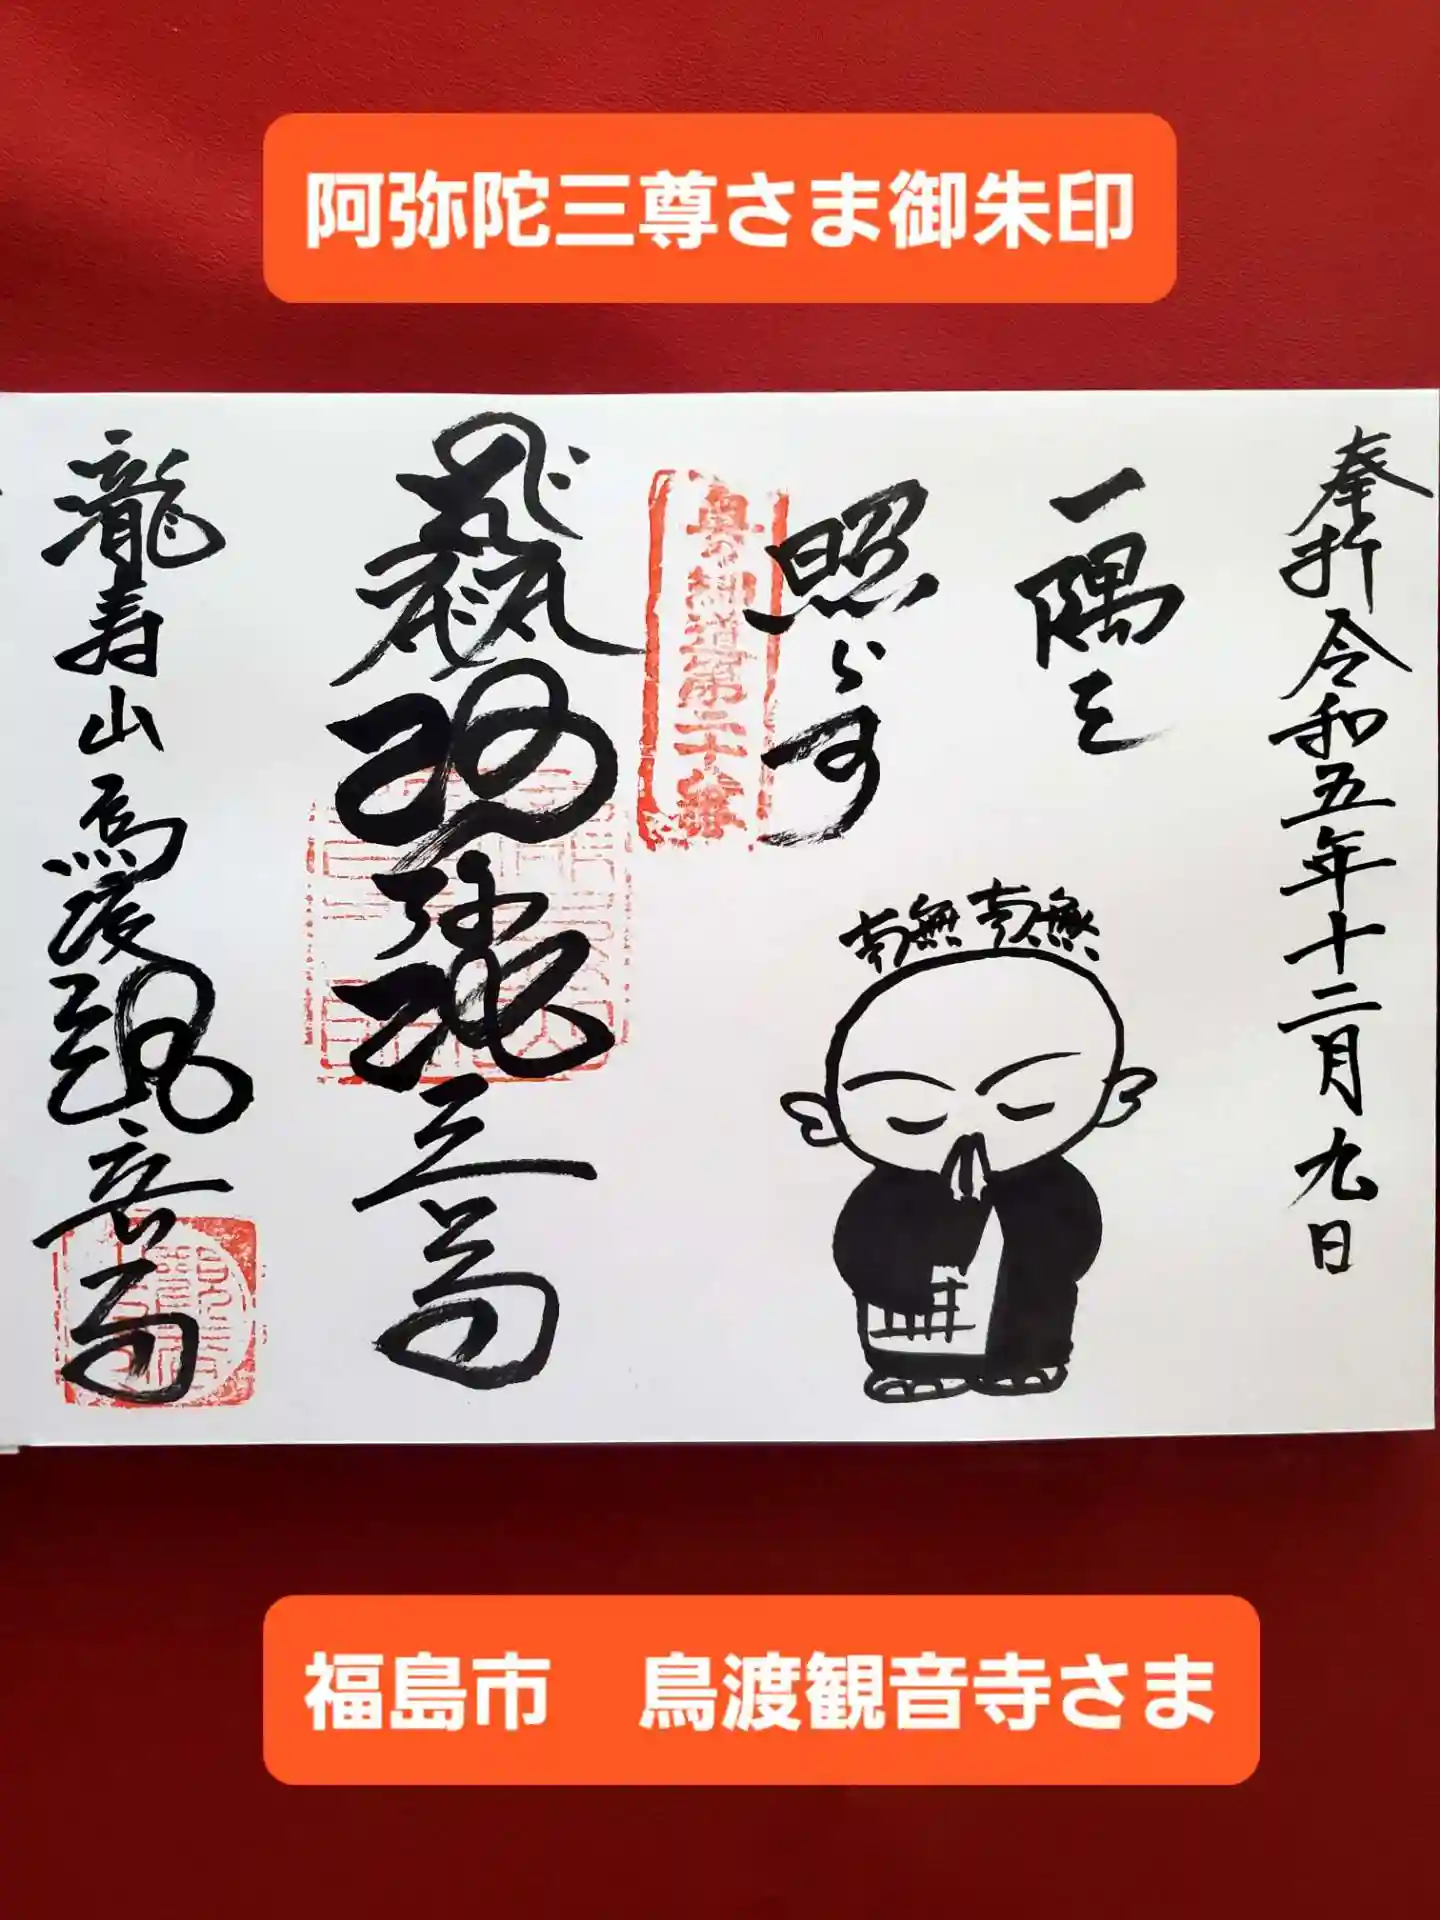 阿弥陀三尊さま御朱印
奉拝 令和五年十二月九日
一隅を
照らす
南無 南無
阿弥陀三尊
瀧寿山 鳥渡観音寺
福島市　鳥渡観音寺さま